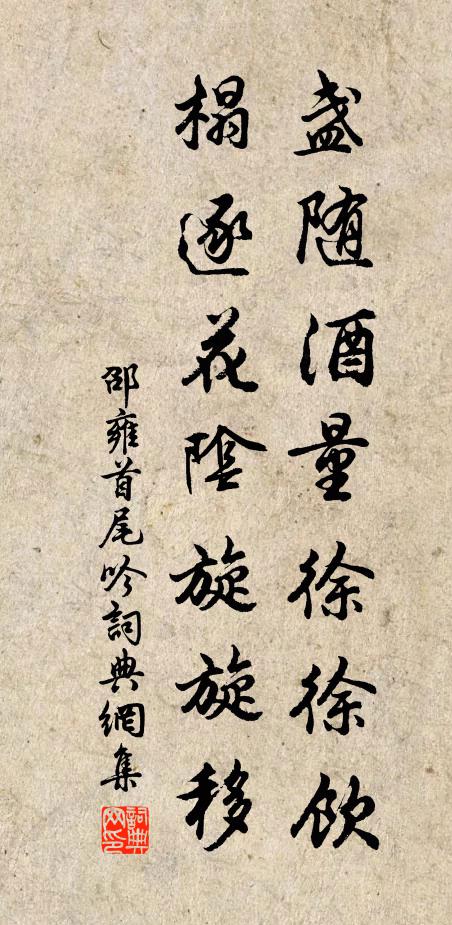 盏随酒量徐徐饮
榻逐花陰旋旋移
邵雍首尾吟詞典網集
詞典网印